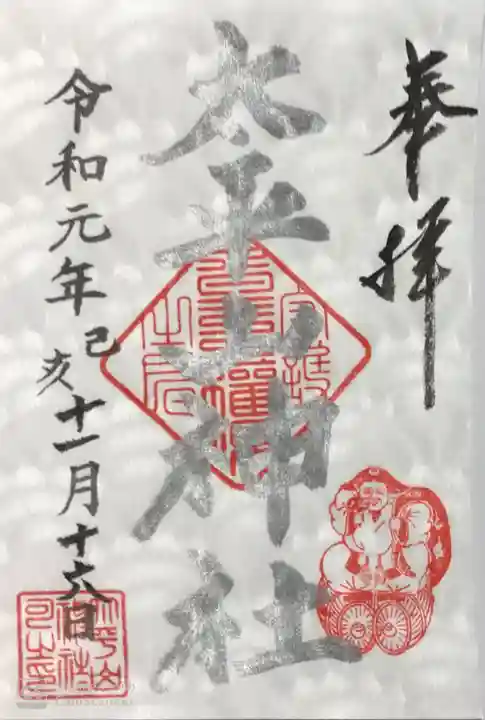 奉拝
太平山神社
令和元年己亥十一月十六日